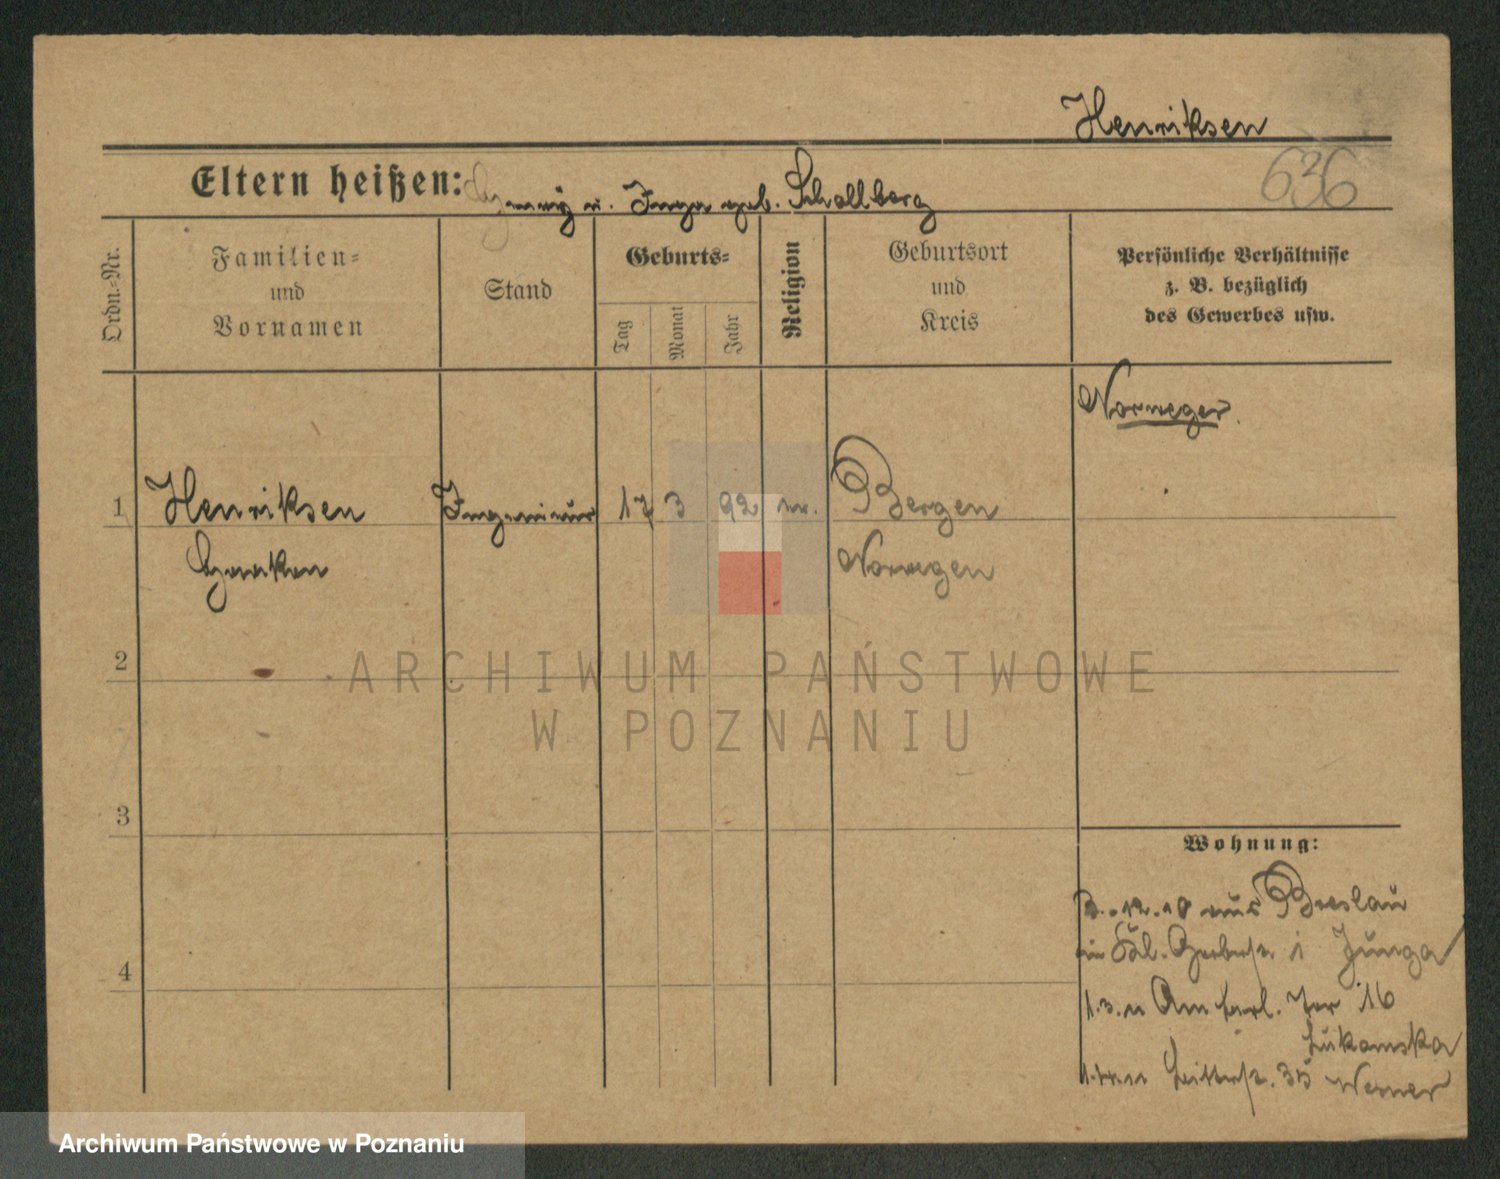 Henriksen
636
Eltern heißen: u. Inga geb. Schollberg
Ordn.-Nr.
Familien-
und
Vornamen
Stand
Geburts-
Tag
Monat
Jahr
Religion
Geburtsort
und
Kreis
Persönliche Verhältnisse
z. B. bezüglich
des Gewerbes usw.
Norweger.
1 Henriksen Ingenieur 17 3 92 Bergen
Haakon Norwegen
2
3
4
Wohnung:
aus Breslau
Junga
Am Berl. Tor 16
Lukomska
35 Werner
ARCHIWUM PAŃSTWOWE
W POZNANIU
Archiwum Państwowe w Poznaniu